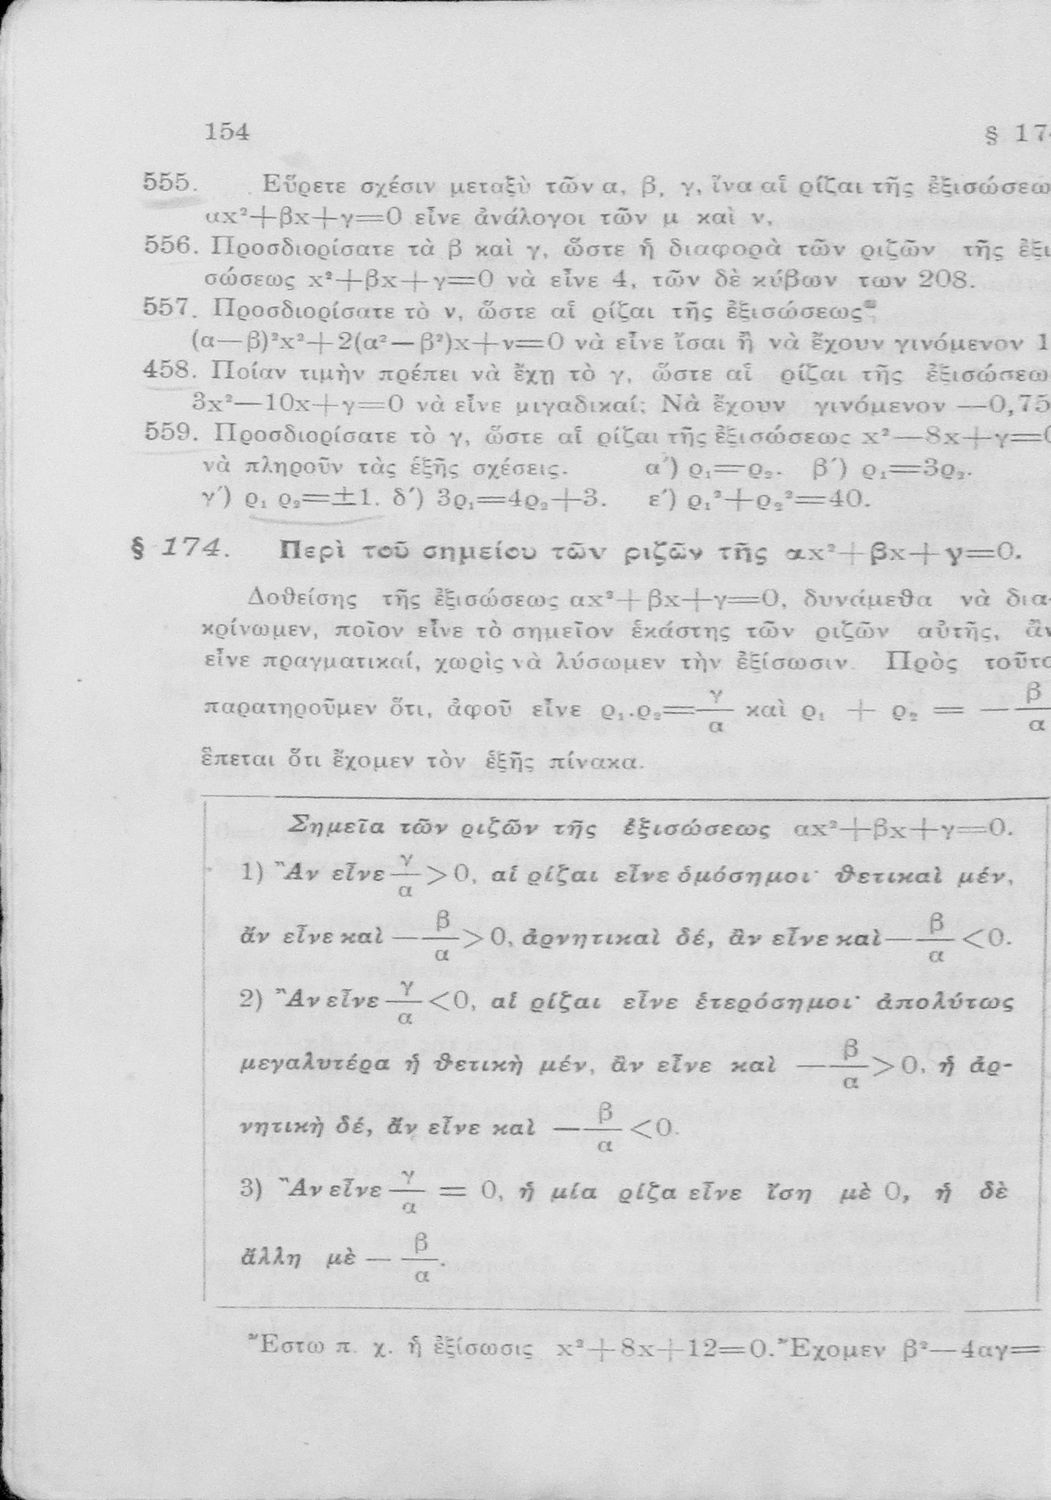 154 § 17
555. Εὕρετε σχέσιν μεταξὺ τῶν α, β, γ, ἵνα αἱ ρίζαι τῆς ἐξισώσεω
αx²+βx+γ=0 εἶνε ἀνάλογοι τῶν μ καὶ ν.
556. Προσδιορίσατε τὰ β καὶ γ, ὥστε ἡ διαφορὰ τῶν ριζῶν τῆς ἐξι
σώσεως x²+βx+γ=0 νὰ εἶνε 4, τῶν δὲ κύβων των 208.
557. Προσδιορίσατε τὸ ν, ὥστε αἱ ρίζαι τῆς ἐξισώσεως
(α—β)²x²+2(α²—β²)x+ν=0 νὰ εἶνε ἴσαι ἢ νὰ ἔχουν γινόμενον 1
458. Ποίαν τιμὴν πρέπει νὰ ἔχῃ τὸ γ, ὥστε αἱ ρίζαι τῆς ἐξισώσεω
3x²—10x+γ=0 νὰ εἶνε μιγαδικαί; Νὰ ἔχουν γινόμενον —0,75
559. Προσδιορίσατε τὸ γ, ὥστε αἱ ρίζαι τῆς ἐξισώσεως x²—8x+γ=0
νὰ πληροῦν τὰς ἑξῆς σχέσεις. α΄) ϱ₁=ϱ₂. β΄) ϱ₁=3ϱ₂.
γ΄) ϱ₁ ϱ₂=±1. δ΄) 3ϱ₁=4ϱ₂+3. ε΄) ϱ₁²+ϱ₂²=40.
§ 174. Περὶ τοῦ σημείου τῶν ριζῶν τῆς αx²+βx+γ=0.
Δοθείσης τῆς ἐξισώσεως αx²+βx+γ=0, δυνάμεθα νὰ δια-
κρίνωμεν, ποῖον εἶνε τὸ σημεῖον ἑκάστης τῶν ριζῶν αὐτῆς, ἂν
εἶνε πραγματικαί, χωρὶς νὰ λύσωμεν τὴν ἐξίσωσιν. Πρὸς τοῦτο
παρατηροῦμεν ὅτι, ἀφοῦ εἶνε ϱ₁.ϱ₂=γ/α καὶ ϱ₁ + ϱ₂ = —β/α
ἕπεται ὅτι ἔχομεν τὸν ἑξῆς πίνακα.
Σημεῖα τῶν ριζῶν τῆς ἐξισώσεως αx²+βx+γ=0.
1) Ἂν εἶνε γ/α>0, αἱ ρίζαι εἶνε ὁμόσημοι· θετικαὶ μέν,
ἂν εἶνε καὶ —β/α>0, ἀρνητικαὶ δέ, ἂν εἶνε καὶ —β/α<0.
2) Ἂν εἶνε γ/α<0, αἱ ρίζαι εἶνε ἑτερόσημοι· ἀπολύτως
μεγαλυτέρα ἡ θετικὴ μέν, ἂν εἶνε καὶ —β/α>0, ἡ ἀρ-
νητικὴ δέ, ἂν εἶνε καὶ —β/α<0.
3) Ἂν εἶνε γ/α = 0, ἡ μία ρίζα εἶνε ἴση μὲ 0, ἡ δὲ
ἄλλη μὲ —β/α.
Ἔστω π. χ. ἡ ἐξίσωσις x²+8x+12=0. Ἔχομεν β²—4αγ=